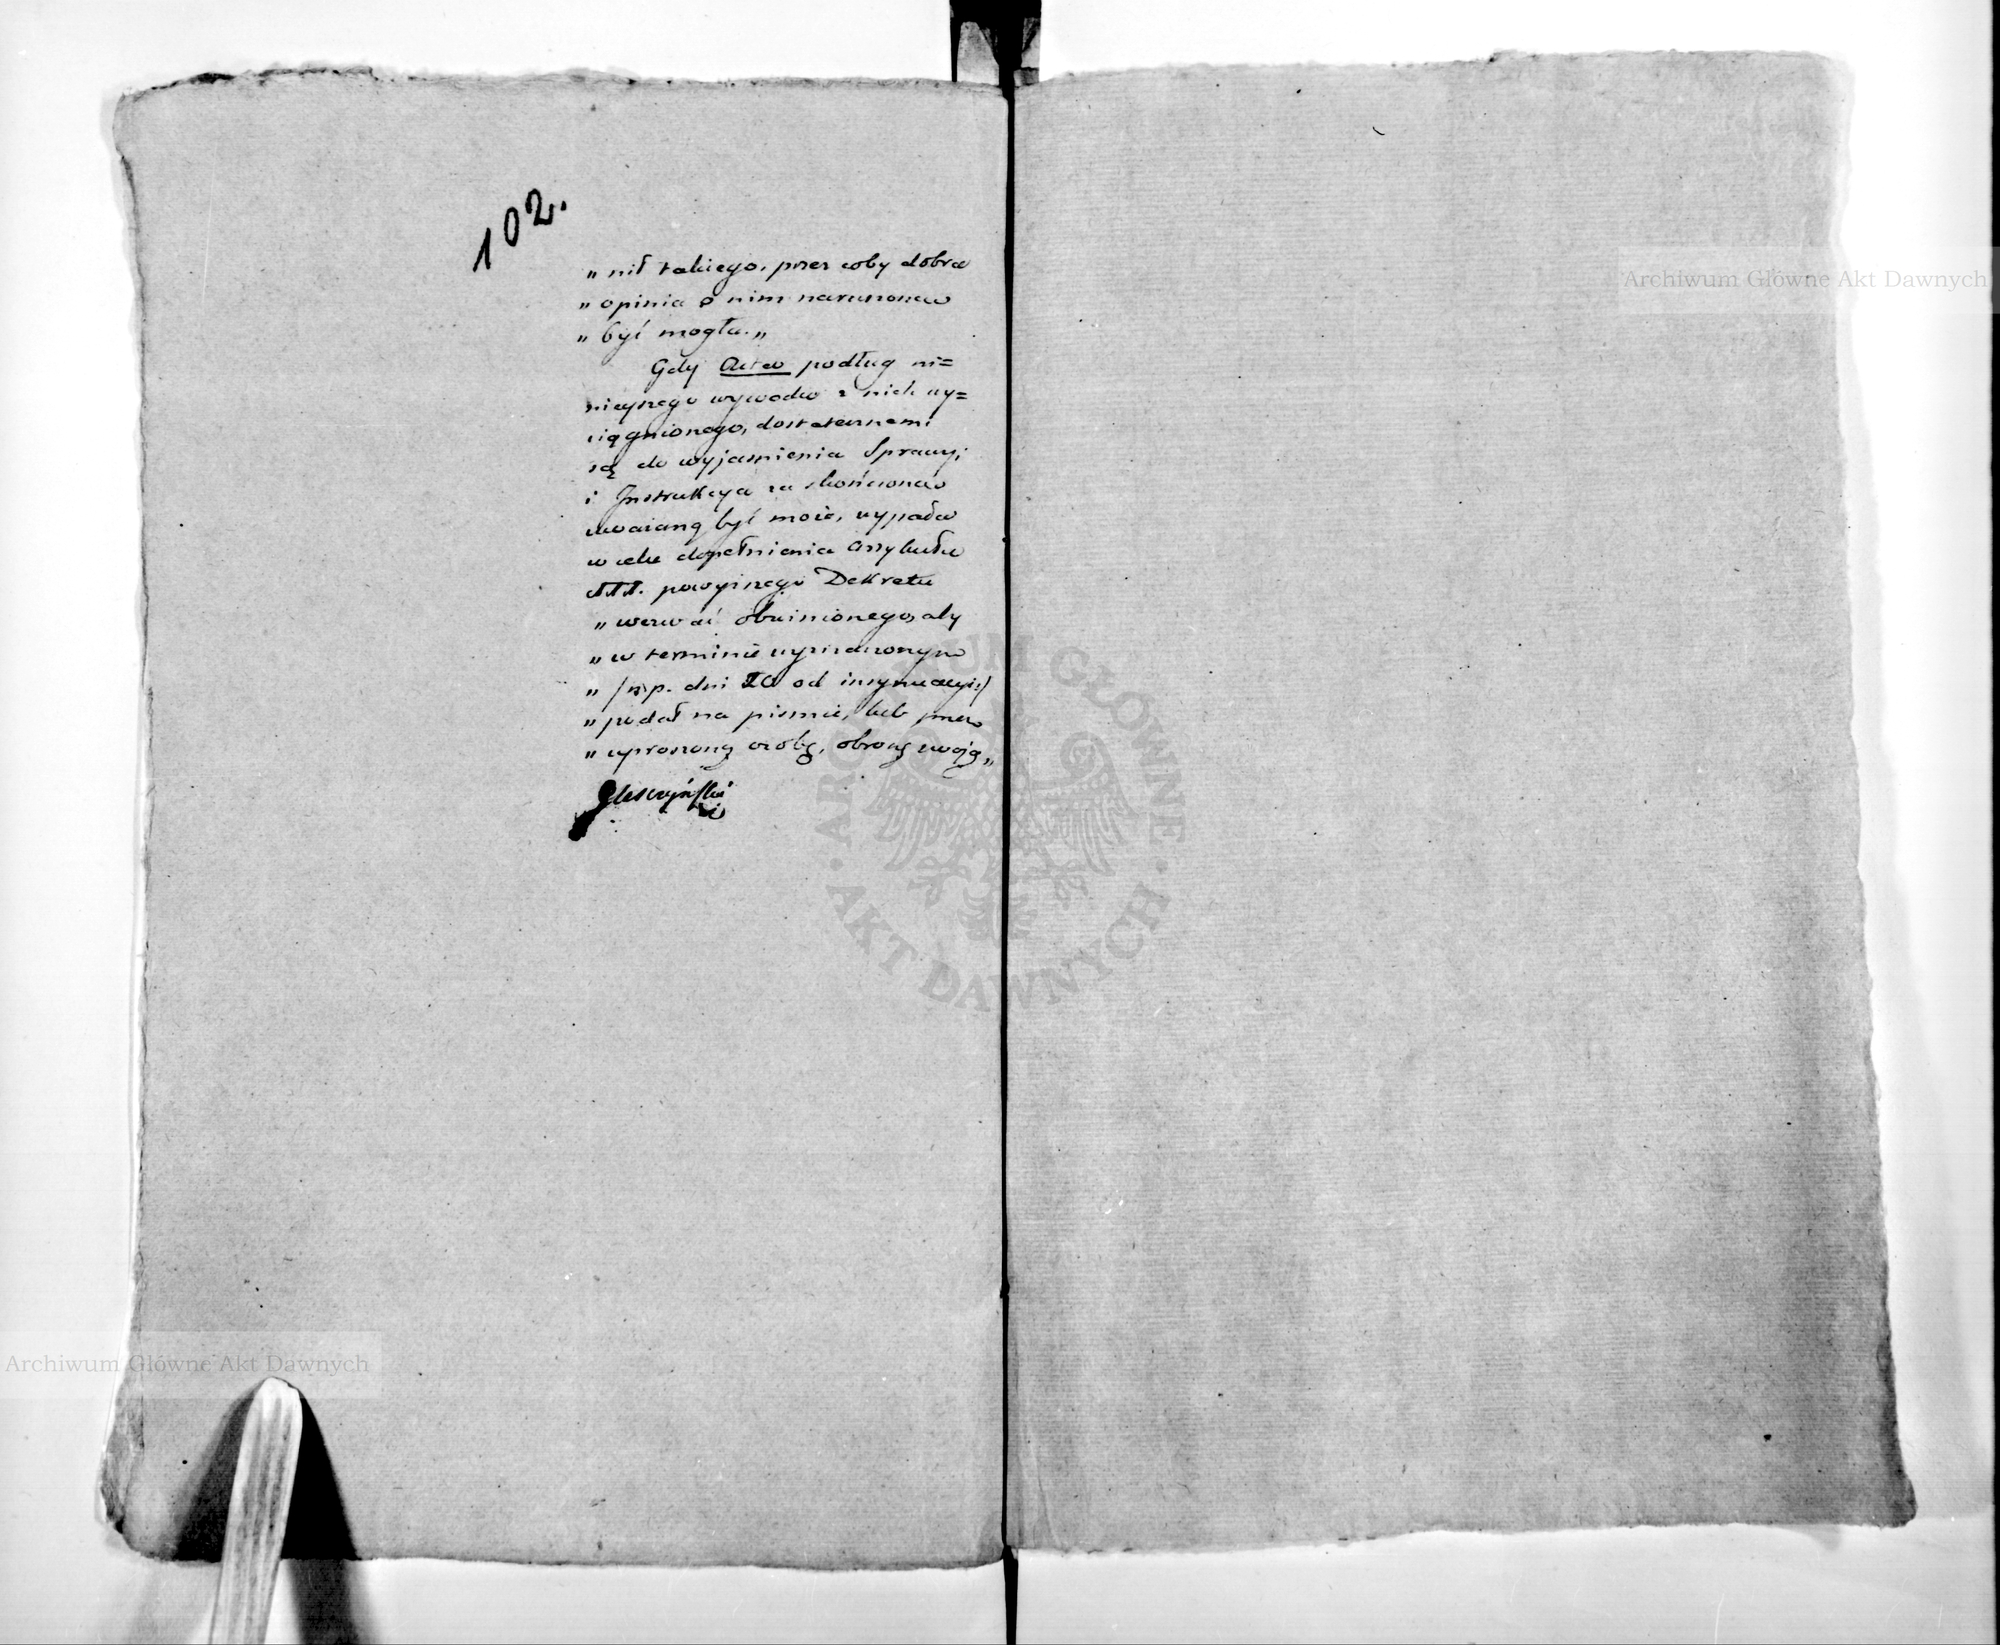 102.
„ nił takiego, przez coby dobra
„ opinia o nim naruszona
„ być mogła. „
Gdy Acta podług ni=
nieyszego wywodu z nich wy=
ciągnionego, dostatecznemi
są do wyjaśnienia Sprawy;
i Instrukcya za skończoną
uważaną być może, wypada
w celu dopełnienia Artykułu
powyższego Dekretu
„ wezwać obwinionego, aby
„ w terminie wyznaczonym
„ /np. dni 20 od insynuacyi/
„ podał na piśmie, lub przez
„ uproszoną osobę, obronę swoją „
Archiwum Główne Akt Dawnych
Archiwum Główne Akt Dawnych
ARCHIWUM GŁÓWNE · AKT DAWNYCH ·